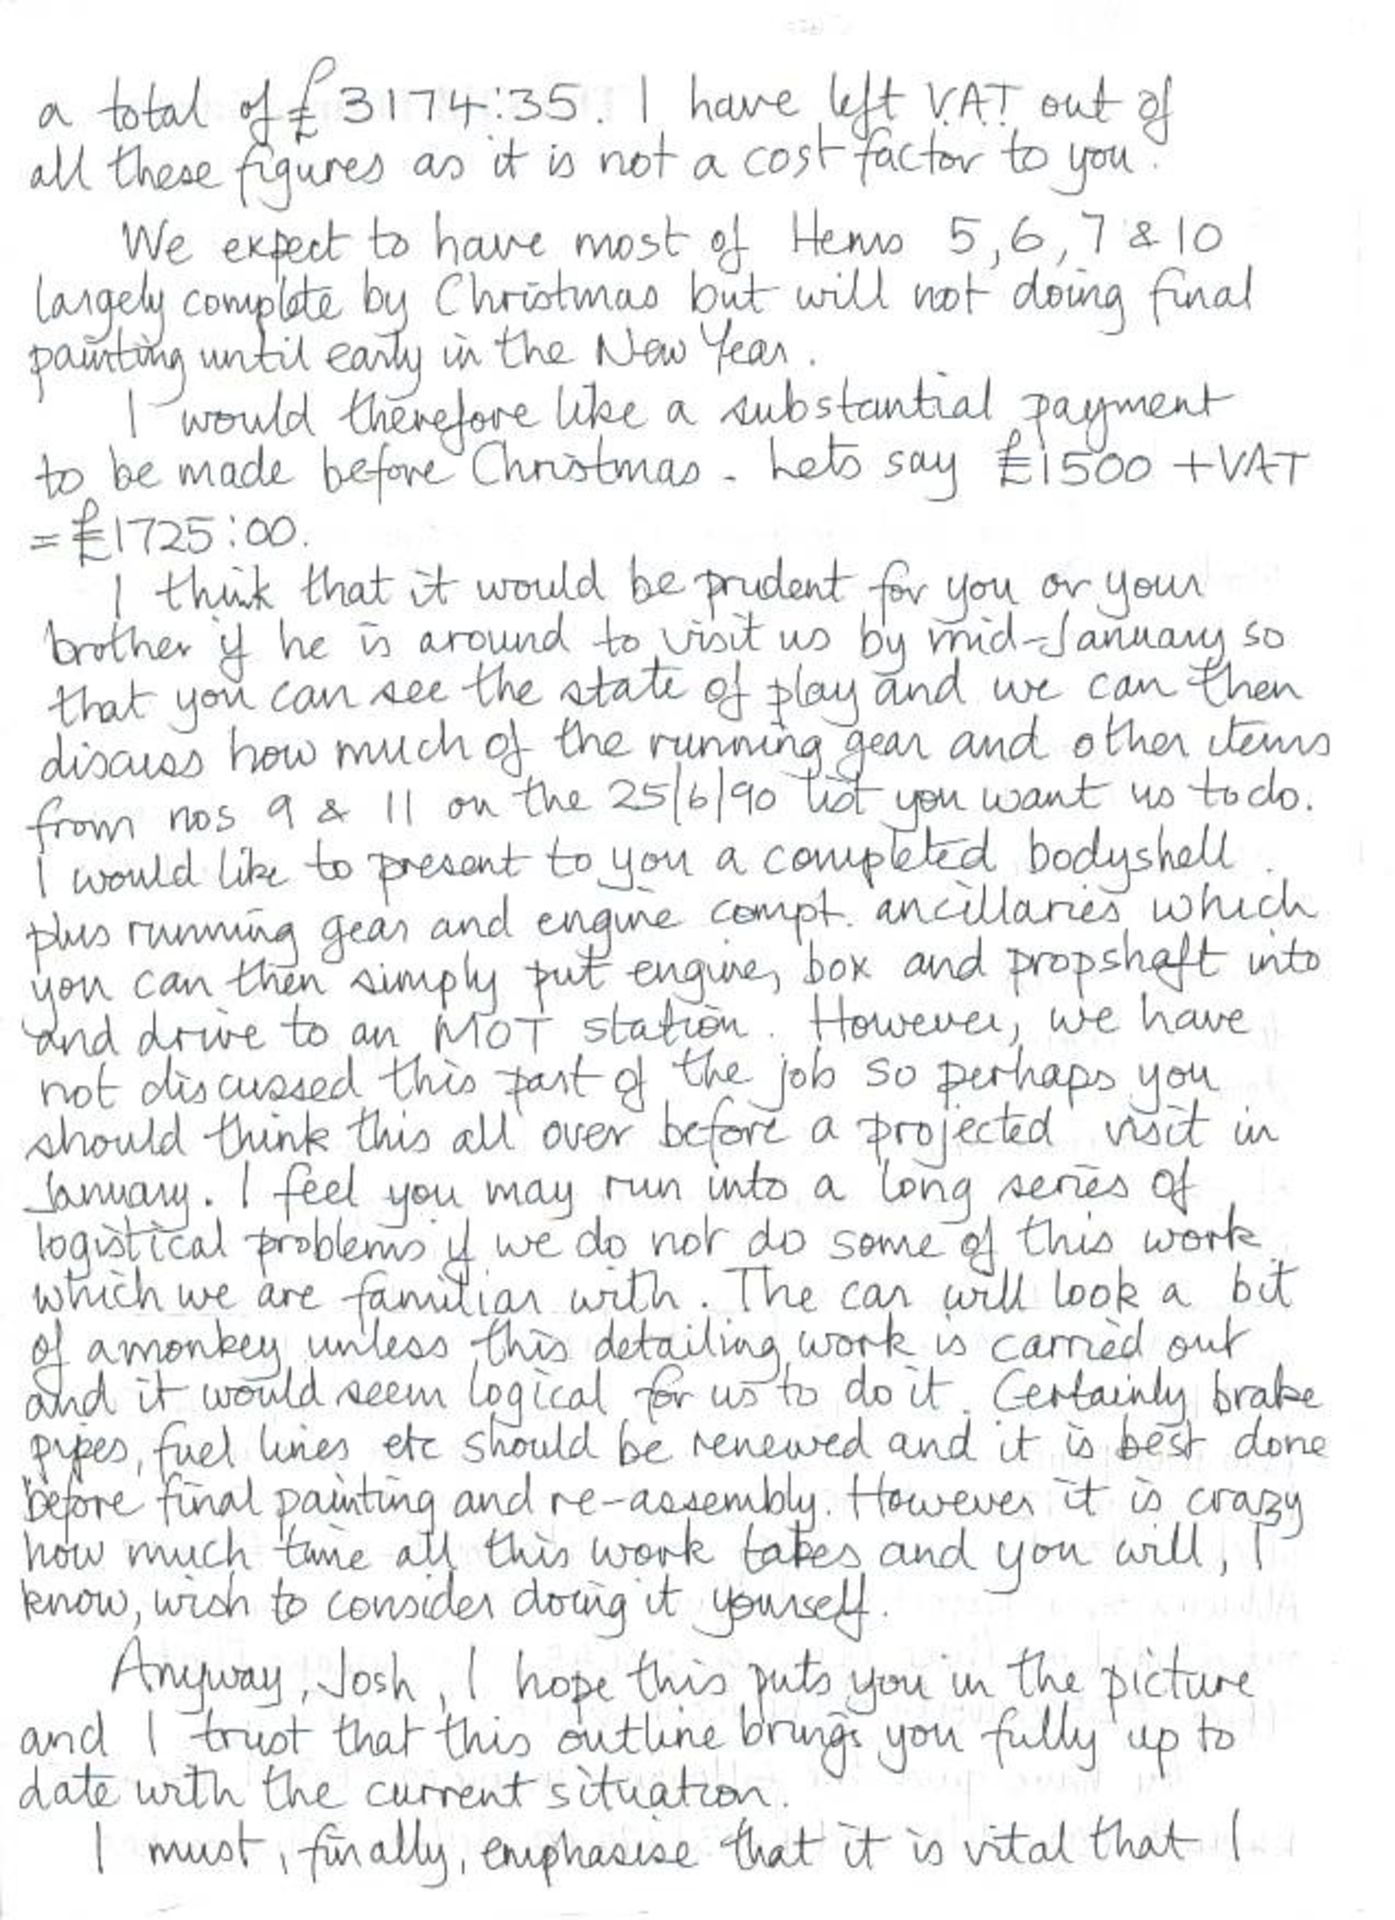 a total of £3174:35. I have left V.A.T out of
all these figures as it is not a cost factor to you.
We expect to have most of Items 5,6,7 & 10
largely complete by Christmas but will not doing final
painting until early in the New Year.
I would therefore like a substantial payment
to be made before Christmas. Lets say £1500 + VAT
= £1725:00.
I think that it would be prudent for you or your
brother if he is around to visit us by mid-January so
that you can see the state of play and we can then
discuss how much of the running gear and other items
from nos 9 & 11 on the 25/6/90 list you want us to do.
I would like to present to you a completed bodyshell
plus running gear and engine compt. ancillaries which
you can then simply put engine, box and propshaft into
and drive to an MOT station. However, we have
not discussed this part of the job so perhaps you
should think this all over before a projected visit in
January. I feel you may run into a long series of
logistical problems if we do not do some of this work
which we are familiar with. The car will look a bit
of a monkey unless this detailing work is carried out
and it would seem logical for us to do it. Certainly brake
pipes, fuel lines etc should be renewed and it is best done
before final painting and re-assembly. However it is crazy
how much time all this work takes and you will, I
know, wish to consider doing it yourself.
Anyway, Josh, I hope this puts you in the picture
and I trust that this outline brings you fully up to
date with the current situation.
I must, finally, emphasise that it is vital that I